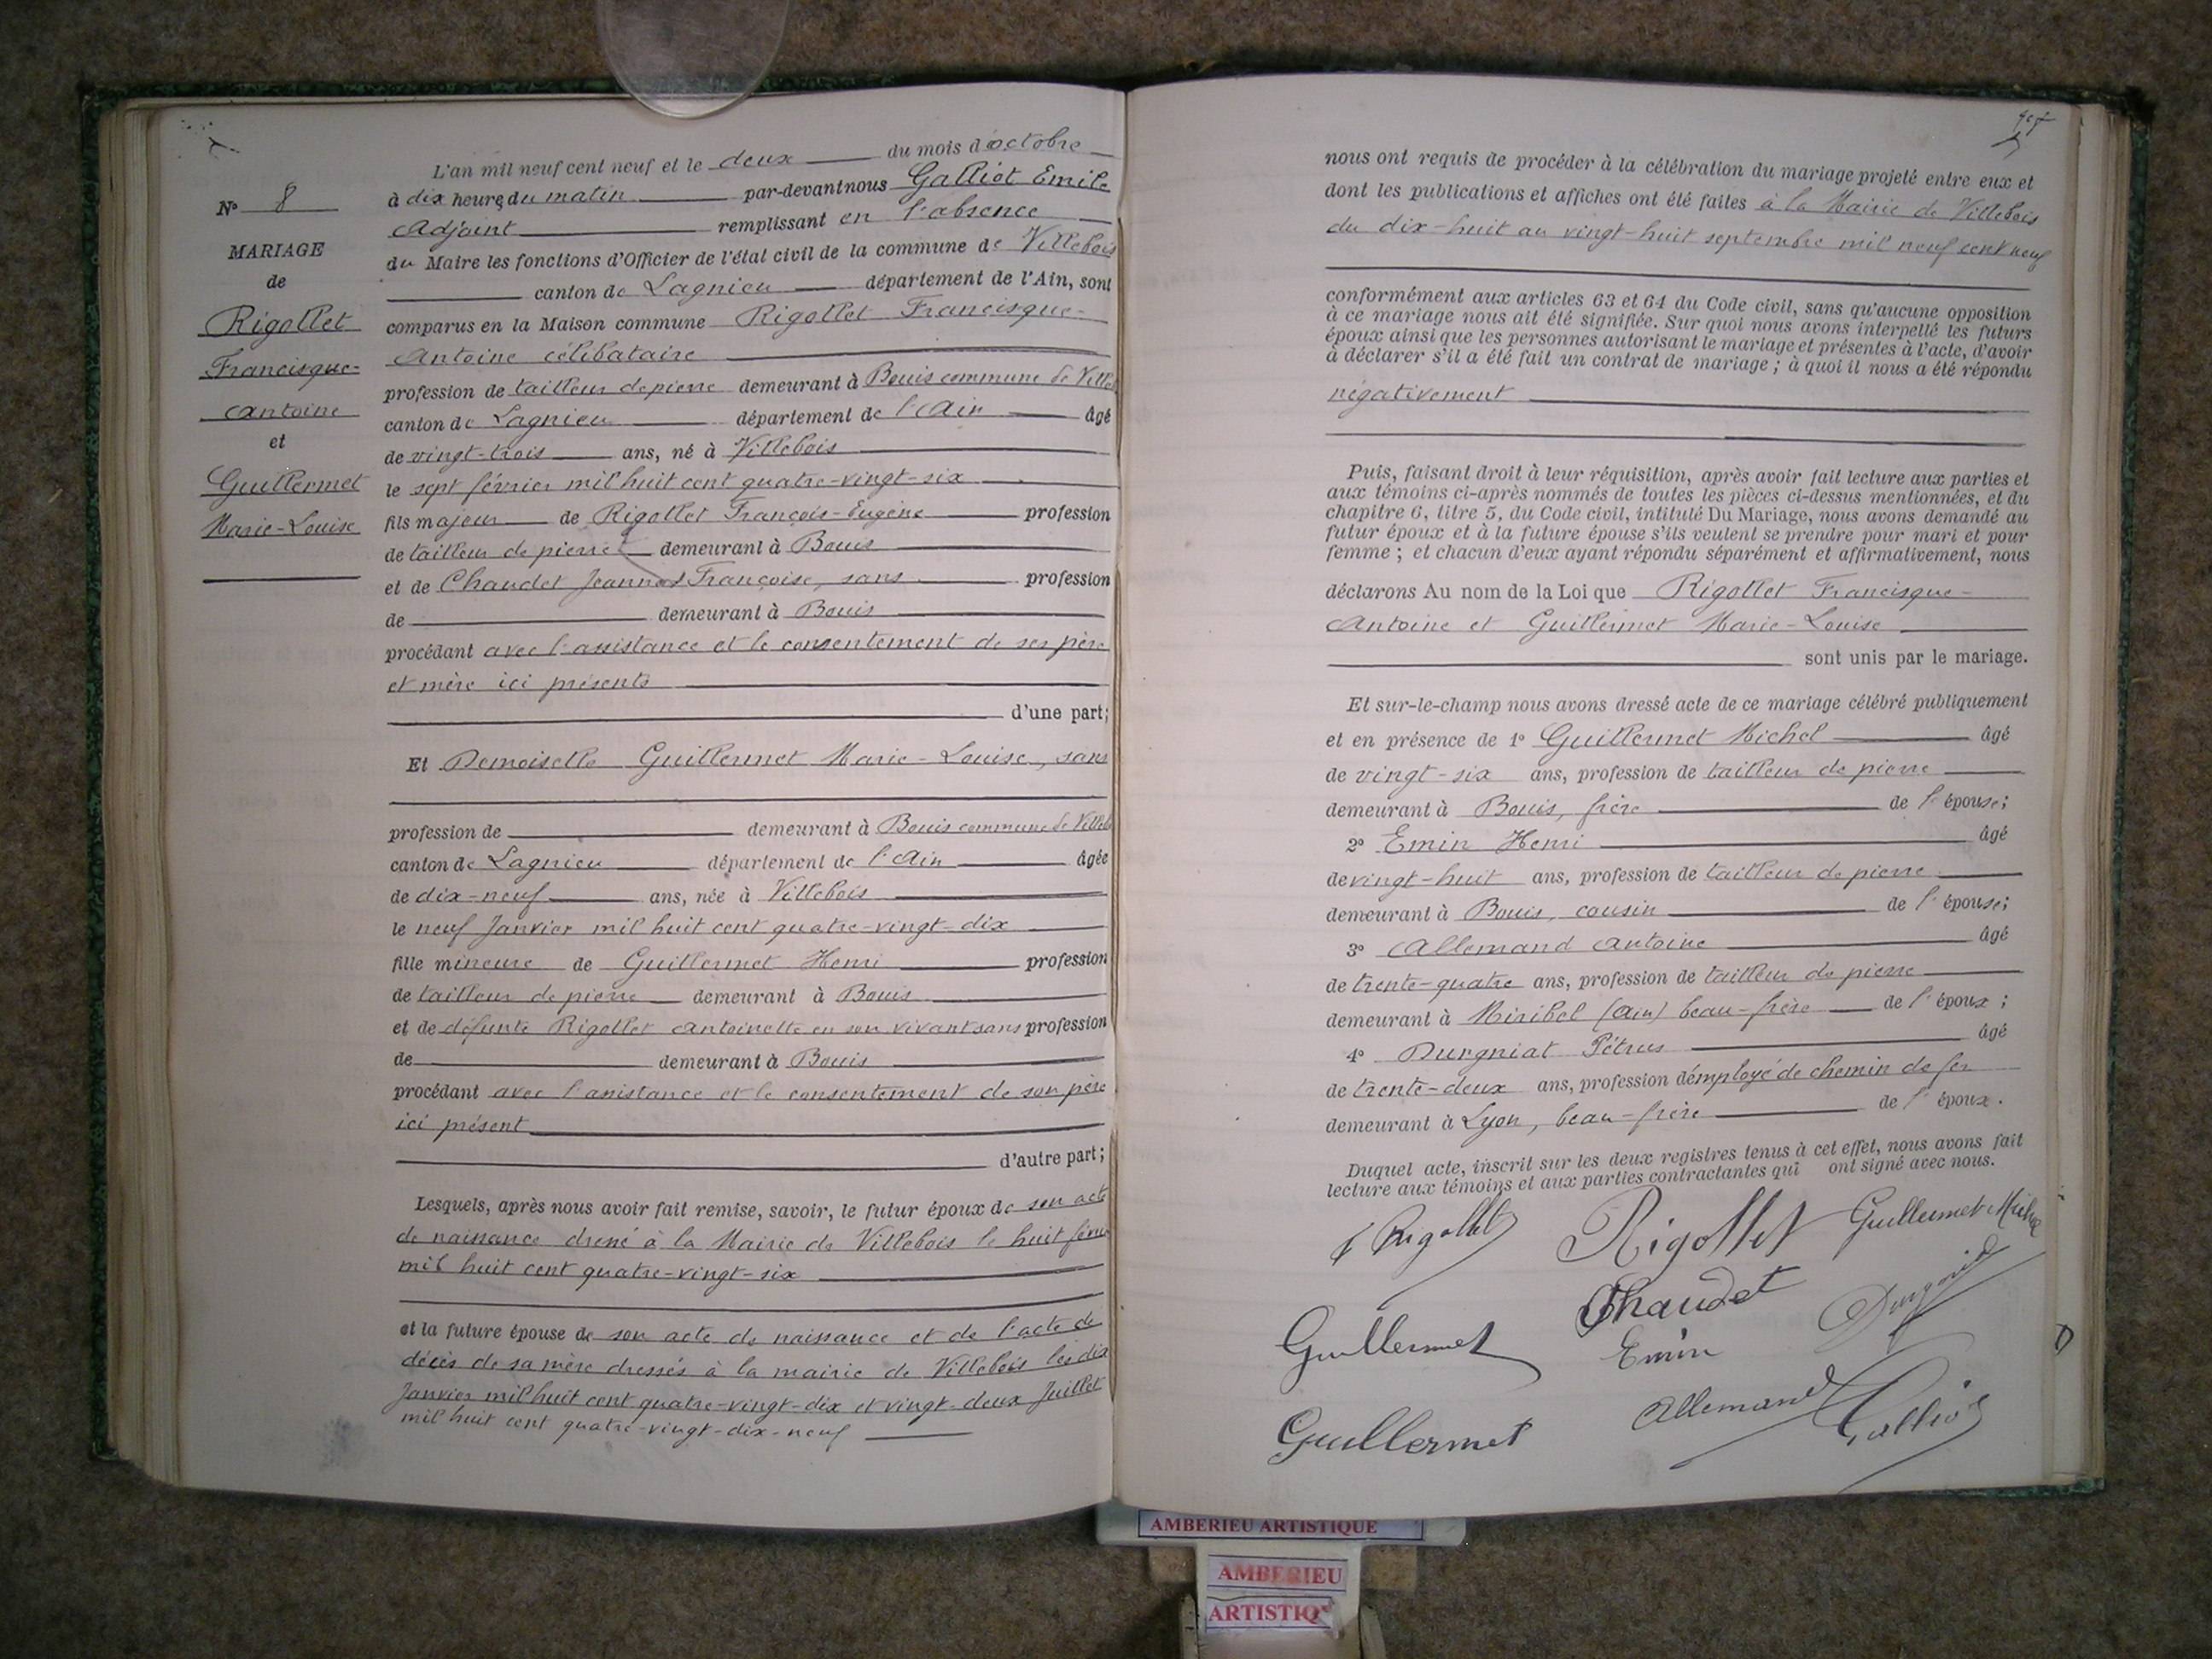 N° 8
MARIAGE
de
Rigollet
Francisque-
Antoine
et
Guillermet
Marie-Louise
L'an mil neuf cent neuf et le deux du mois d'octobre
à dix heures du matin par-devant nous Galliot Emile
Adjoint remplissant en l'absence
du Maire les fonctions d'Officier de l'état civil de la commune de Villebois
canton de Lagnieu département de l'Ain, sont
comparus en la Maison commune Rigollet Francisque-
Antoine célibataire
profession de tailleur de pierre demeurant à Bouis commune de Villeb
canton de Lagnieu département de l'Ain âgé
de vingt-trois ans, né à Villebois
le sept février mil huit cent quatre-vingt-six
fils majeur de Rigollet François-Eugène profession
de tailleur de pierre demeurant à Bouis
et de Chaudet Jeanne Françoise, sans profession
de demeurant à Bouis
procédant avec l'assistance et le consentement de ses père
et mère ici présents
d'une part;
Et Demoiselle Guillermet Marie-Louise, sans
profession de demeurant à Bouis commune de Villeb
canton de Lagnieu département de l'Ain âgée
de dix-neuf ans, née à Villebois
le neuf Janvier mil huit cent quatre-vingt-dix
fille mineure de Guillermet Henri profession
de tailleur de pierre demeurant à Bouis
et de défunte Rigollet Antoinette en son vivant sans profession
de demeurant à Bouis
procédant avec l'assistance et le consentement de son père
ici présent
d'autre part;
Lesquels, après nous avoir fait remise, savoir, le futur époux de son acte
de naissance dressé à la Mairie de Villebois le huit févri
mil huit cent quatre-vingt-six
et la future épouse de son acte de naissance et de l'acte de
décès de sa mère dressés à la mairie de Villebois les dix
Janvier mil huit cent quatre-vingt-dix et vingt-deux Juillet
mil huit cent quatre-vingt-dix-neuf
nous ont requis de procéder à la célébration du mariage projeté entre eux et
dont les publications et affiches ont été faites à la Mairie de Villebois
du dix-huit au vingt-huit septembre mil neuf cent neuf
conformément aux articles 63 et 64 du Code civil, sans qu'aucune opposition
à ce mariage nous ait été signifiée. Sur quoi nous avons interpellé les futurs
époux ainsi que les personnes autorisant le mariage et présentes à l'acte, d'avoir
à déclarer s'il a été fait un contrat de mariage; à quoi il nous a été répondu
négativement
Puis, faisant droit à leur réquisition, après avoir fait lecture aux parties et
aux témoins ci-après nommés de toutes les pièces ci-dessus mentionnées, et du
chapitre 6, titre 5, du Code civil, intitulé Du Mariage, nous avons demandé au
futur époux et à la future épouse s'ils veulent se prendre pour mari et pour
femme; et chacun d'eux ayant répondu séparément et affirmativement, nous
déclarons Au nom de la Loi que Rigollet Francisque-
Antoine et Guillermet Marie-Louise
sont unis par le mariage.
Et sur-le-champ nous avons dressé acte de ce mariage célébré publiquement
et en présence de 1° Guillermet Michel âgé
de vingt-six ans, profession de tailleur de pierre
demeurant à Bouis, frère de l'épouse;
2° Emin Henri âgé
de vingt-huit ans, profession de tailleur de pierre
demeurant à Bouis, cousin de l'épouse;
3° Allemand Antoine âgé
de trente-quatre ans, profession de tailleur de pierre
demeurant à Miribel (Ain) beau-frère de l'époux;
4° Durgniat Pétrus âgé
de trente-deux ans, profession d'employé de chemin de fer
demeurant à Lyon, beau-frère de l'époux.
Duquel acte, inscrit sur les deux registres tenus à cet effet, nous avons fait
lecture aux témoins et aux parties contractantes qui ont signé avec nous.
F Rigollet Rigollet Guillermet Michel
Chaudet
Guillermet Emin
Allemand Galliot
Guillermet
AMBERIEU ARTISTIQUE
AMBERIEU
ARTISTIQ